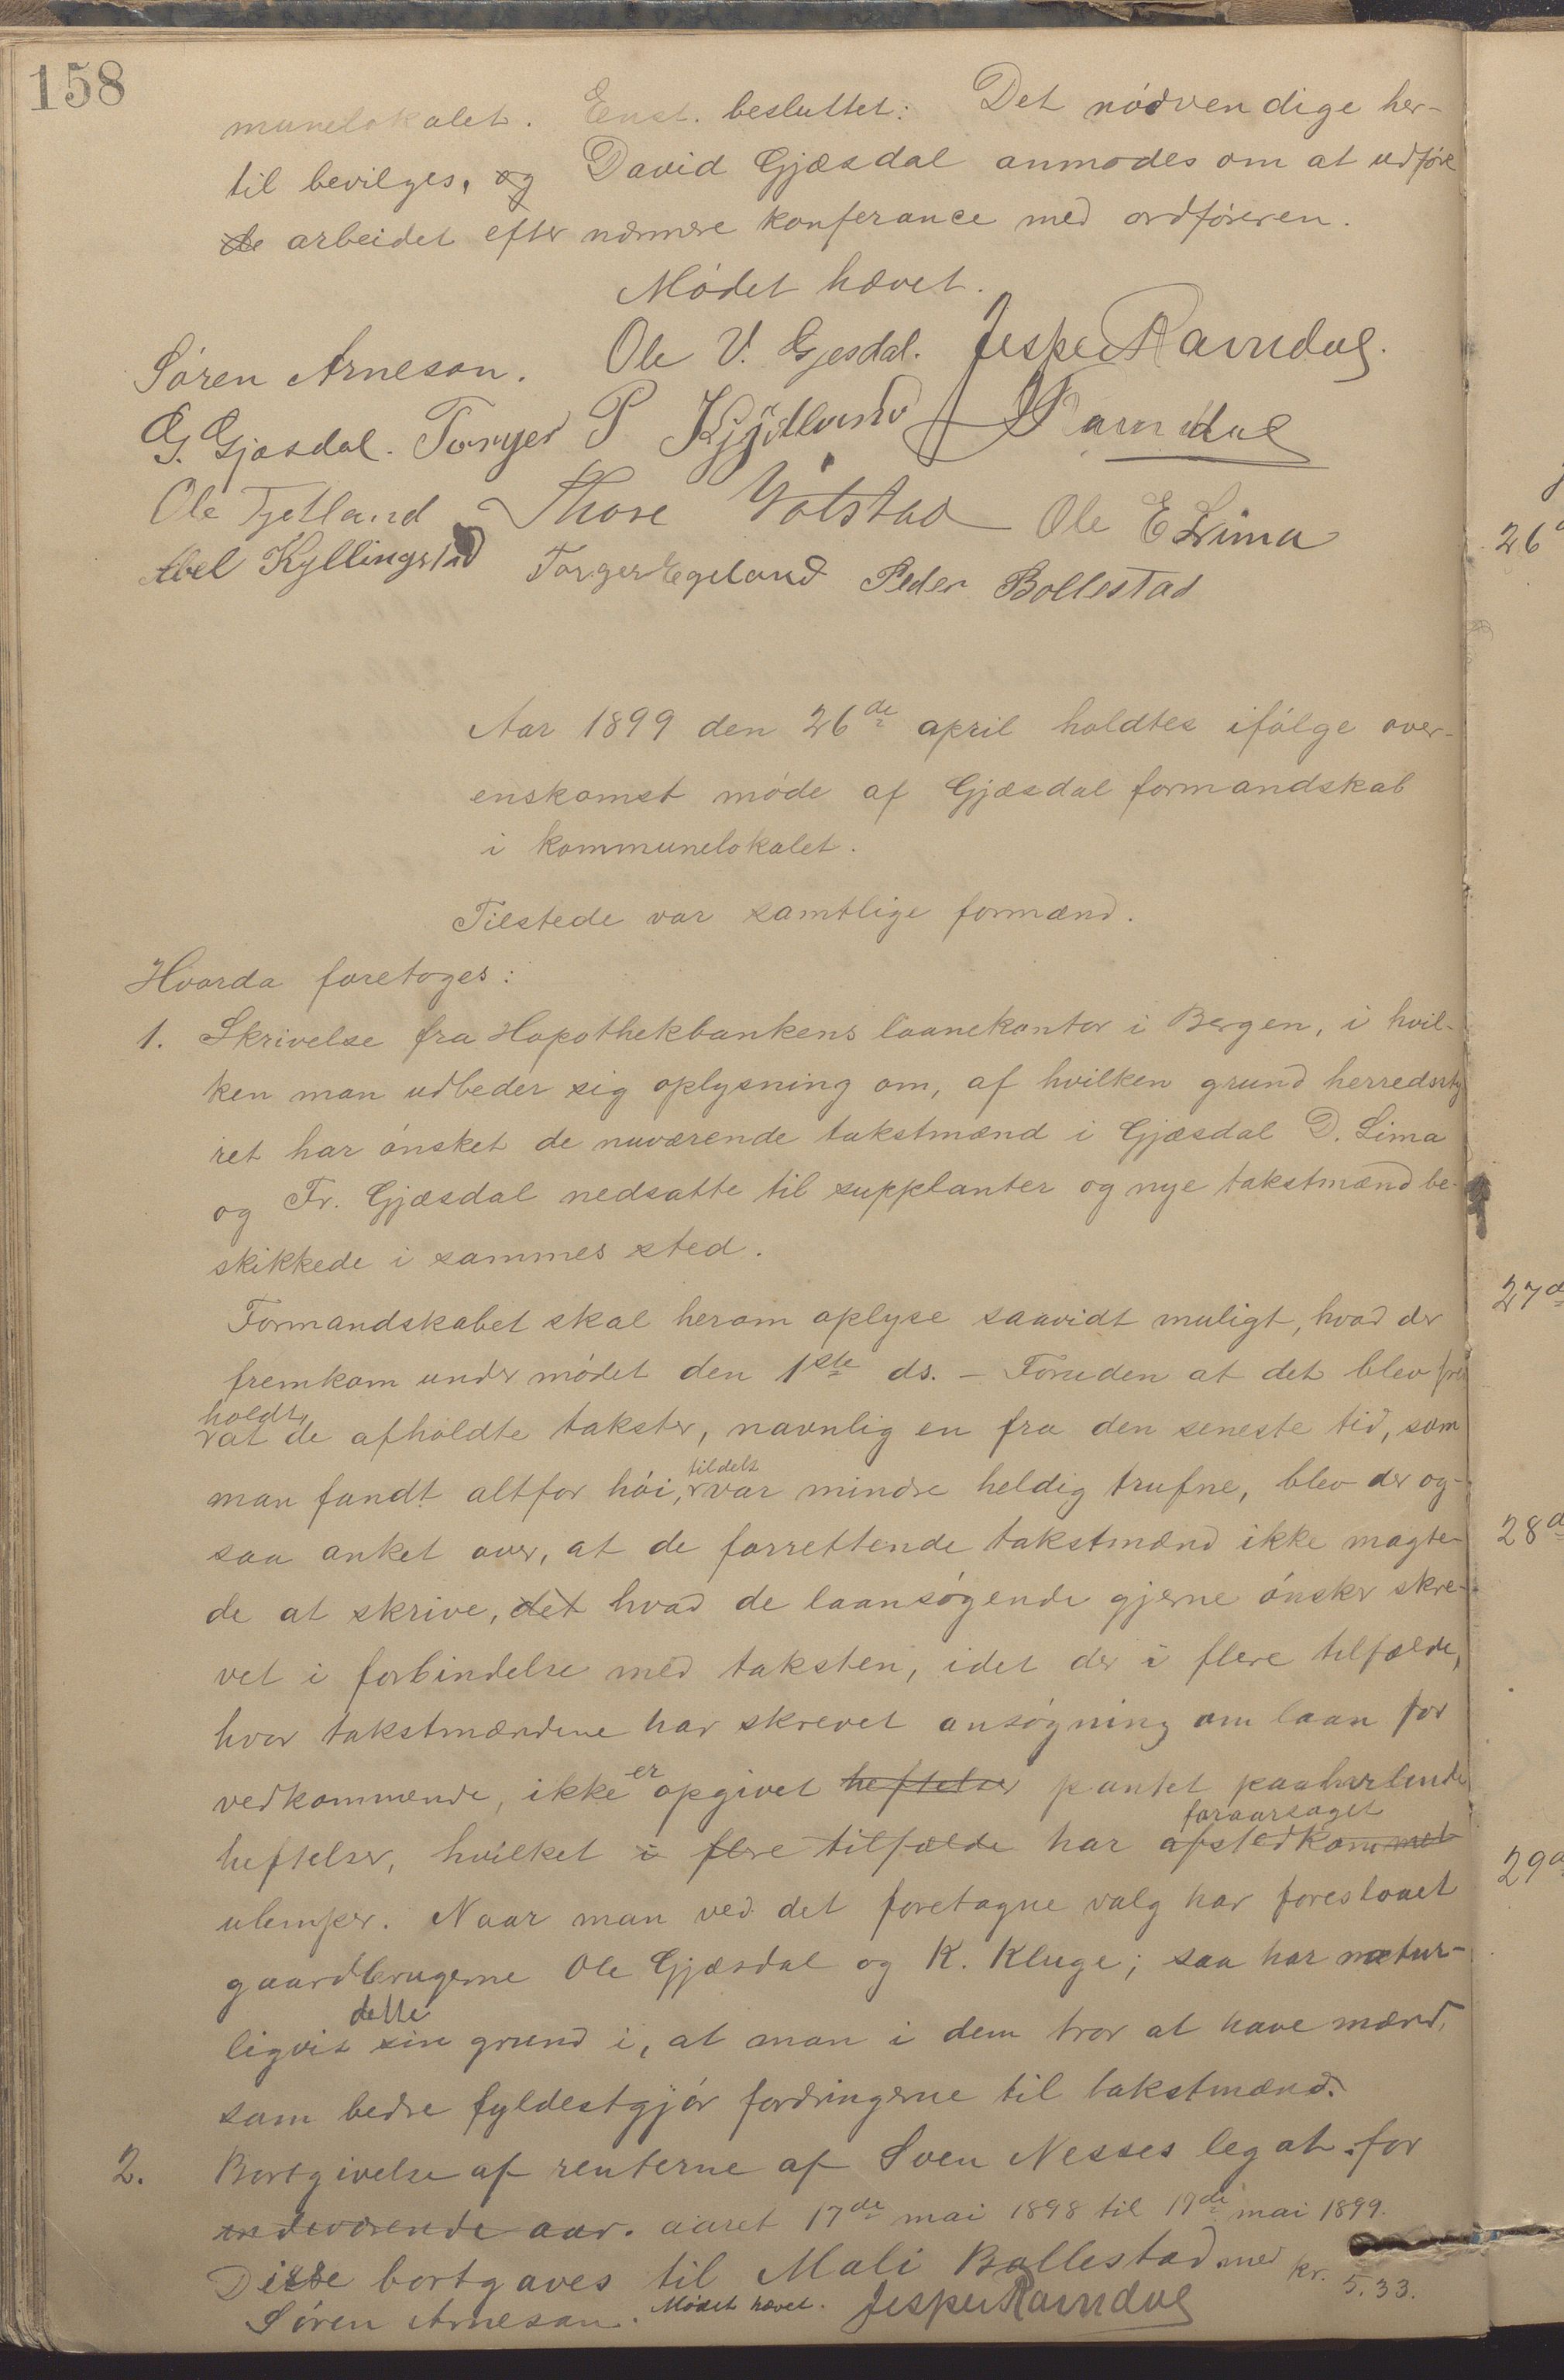 158
munelokalet. Enst. besluttet: Det nødvendige her-
til bevilges, og David Gjæsdal anmodes om at udføre
de arbeidet efter nærmere konferance med ordføreren.
Mødet hævet.
Søren Arneson. Ole V. Gjesdal. Jesper Ravndal.
G. Gjæsdal. Torger P Kjydlund Ravndal
Ole Tjetland Thore Ydtstad Ole E Lima
Abel Kyllingstad Torger Egeland Peder Bollestad
Aar 1899 den 26de april holdtes ifølge over-
enskomst møde af Gjæsdal formandskab
i kommunelokalet.
Tilstede var samtlige formænd.
Hvorda foretoges:
1. Skrivelse fra Hopothekbankens laanekontor i Bergen, i hvil-
ken man udbeder sig oplysning om, af hvilken grund herredsty
ret har ønsket de nuværende takstmænd i Gjæsdal D. Lima
og Fr. Gjæsdal nedsatte til supplanter og nye takstmænd be-
skikkede i sammes sted.
Formandskabet skal herom oplyse saavidt muligt, hvad der
fremkom under mødet den 1ste ds. – Foruden at det blev frem
holdt,
at de afholdte takster, navnlig en fra den seneste tid, som
tildels
man fandt altfor høi, var mindre heldig trufne, blev der og-
saa anket over, at de forrettende takstmænd ikke magte-
de at skrive, det hvad de laansøgende gjerne ønsker skre-
vet i forbindelse med taksten, idet der i flere tilfælde,
hvor takstmændene har skrevet ansøgning om laan for
vedkommende, ikke er opgivet heftelser pantet paahvilende
foraarsaget
heftelser, hvilket i flere tilfælde har afstedkommet
ulemper. Naar man ved det foretagne valg har foreslaaet
gaardbrugerne Ole Gjæsdal og K. Kluge; saa har natur-
dette
ligvis sin grund i, at man i dem tror at have mænd,
som bedre fyldestgjør fordringerne til takstmænd.
2. Bortgivelse af renterne af Sven Nesses legat for
indeværende aar. aaret 17de mai 1898 til 17de mai 1899.
Disse bortgaves til Mali Bollestad med kr. 5.33.
Søren Arneson. Mødet hævet. Jesper Ravndal
26d
27d
28d
29d